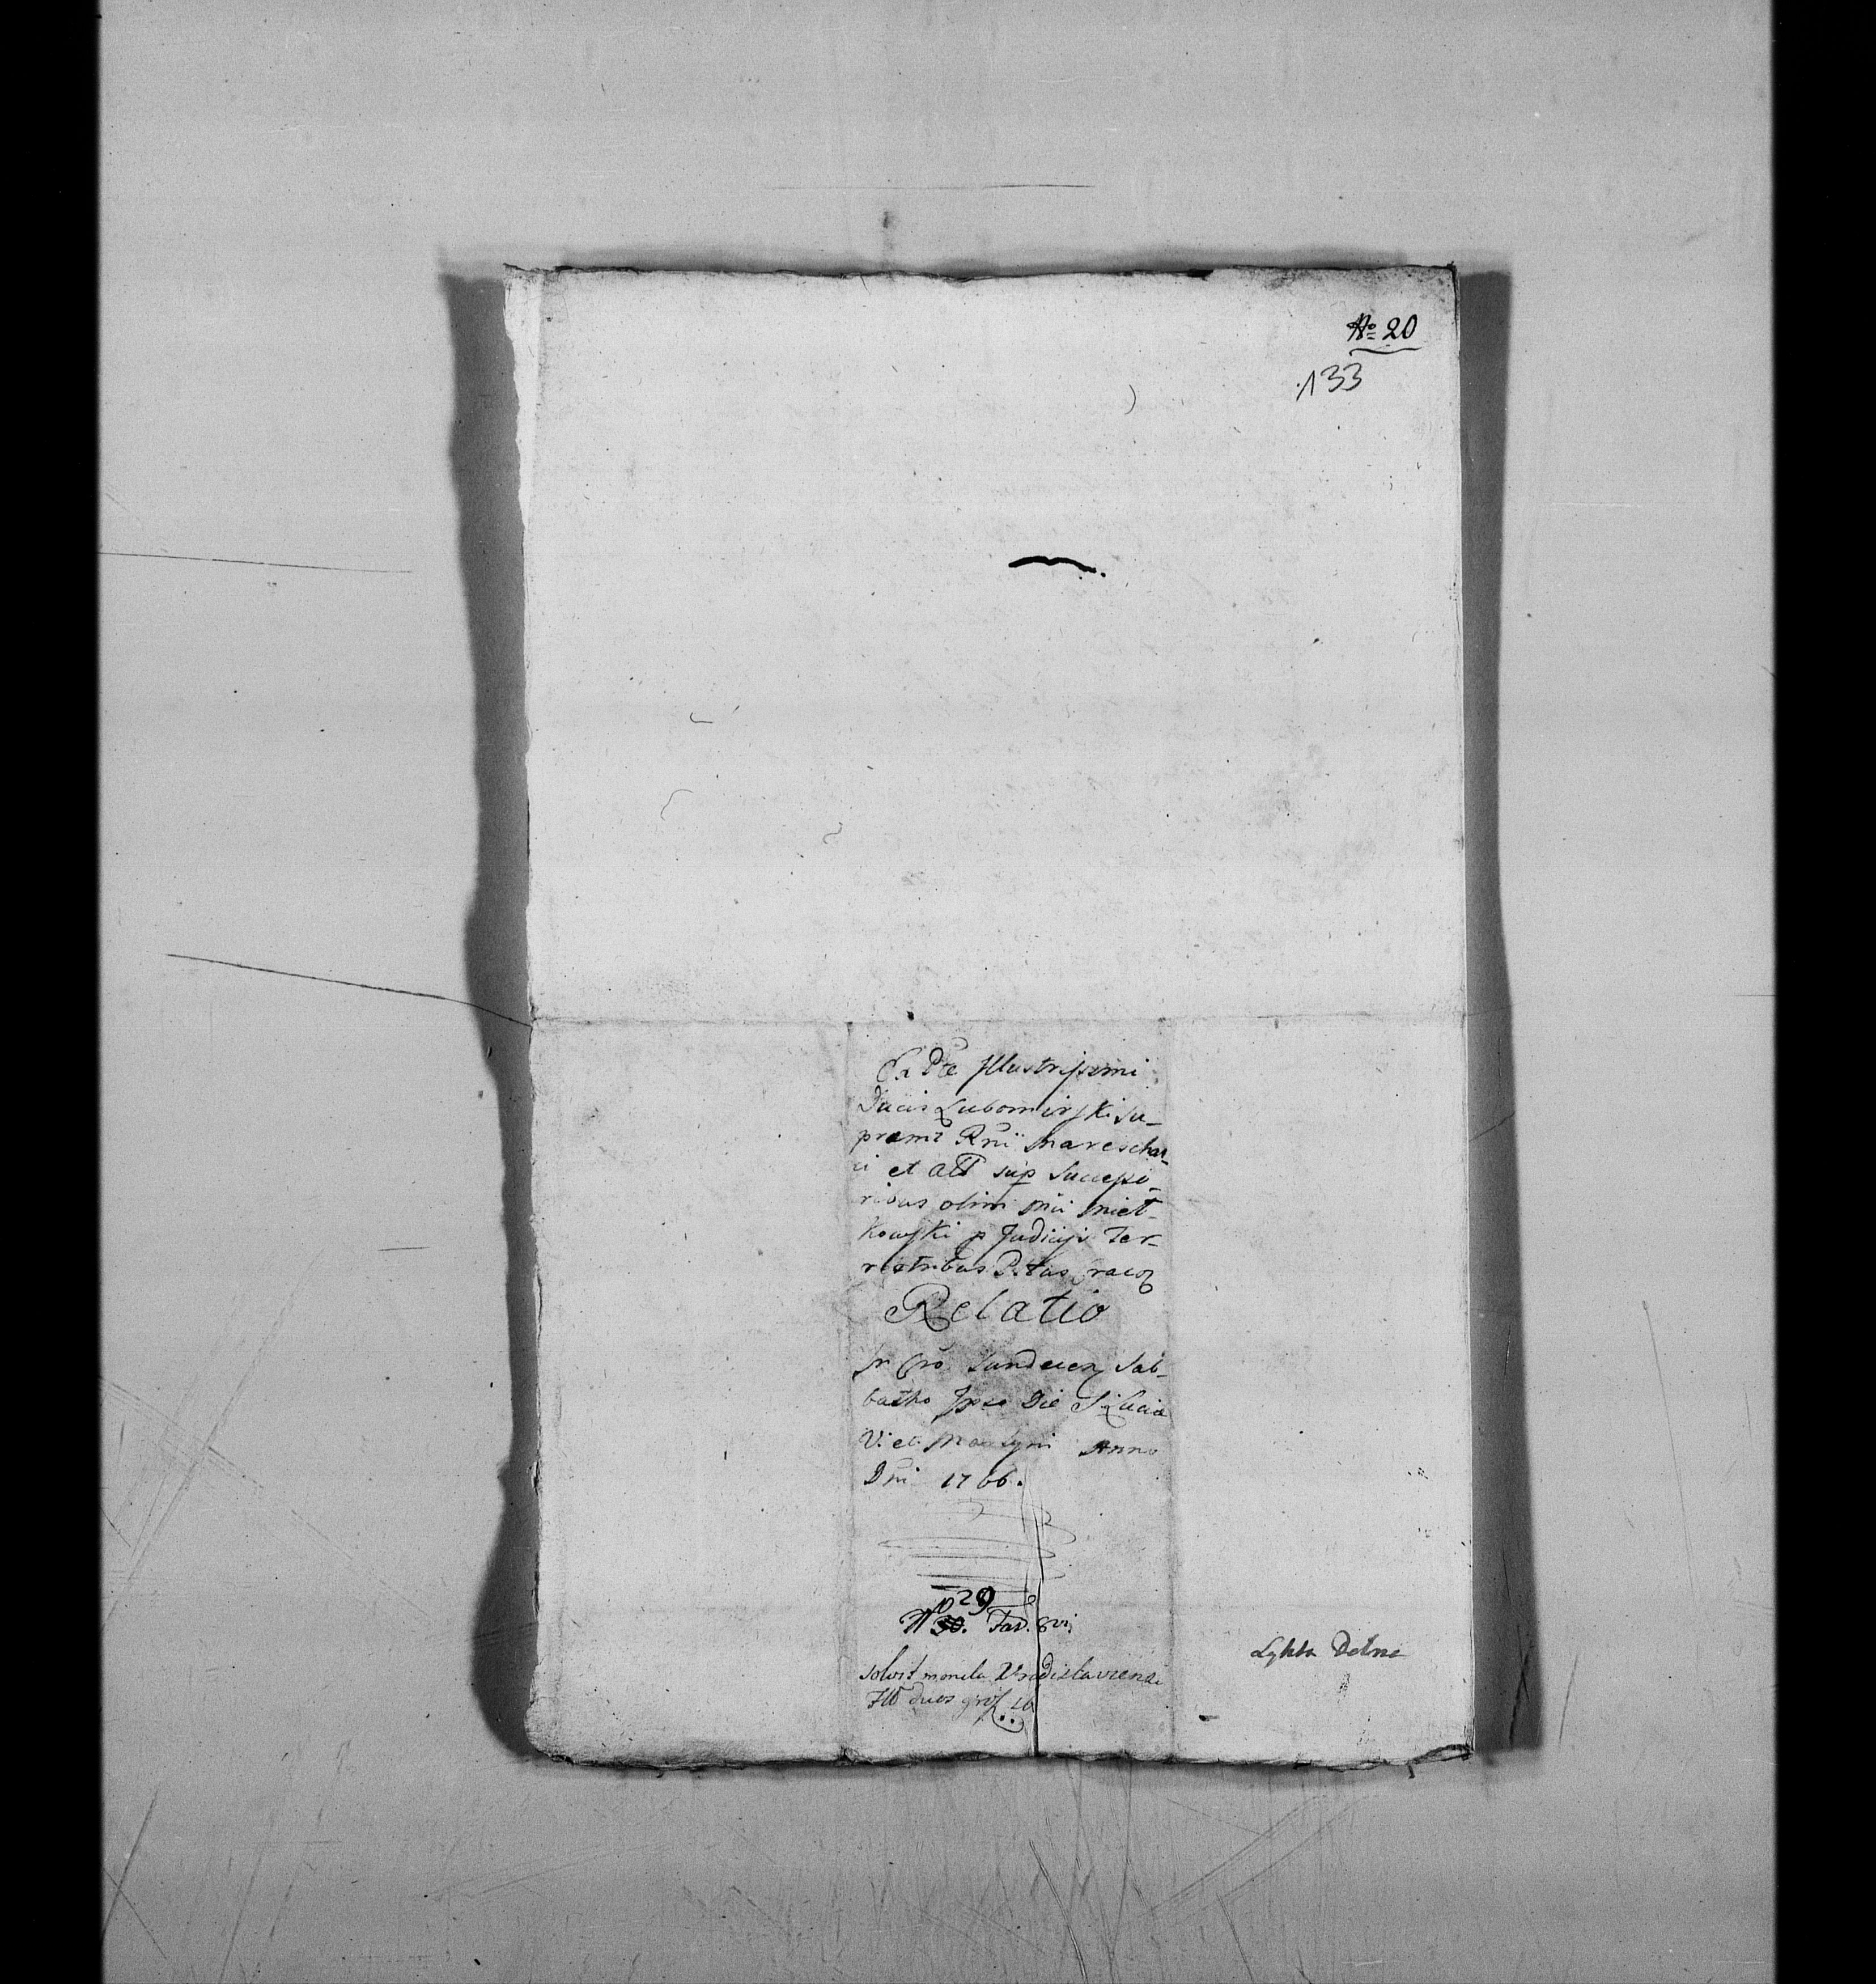 No 20
133
Ex Pte Illustrissimi
Ducis Lubomirski Su-
premi Rni Mareschal-
ci et aliis sup Successo-
ribus olim Mii Miet-
kowski p Judiciis Ter-
restribus Ptus
Relatio
In Cro Sab-
batho Ipso Die S. Lucia
V. et Martyri Anno
Dni 1766.
29
N 30. Fas.
solvit moneta Vradislaviensi
duos gros 16
Lykta Dolne